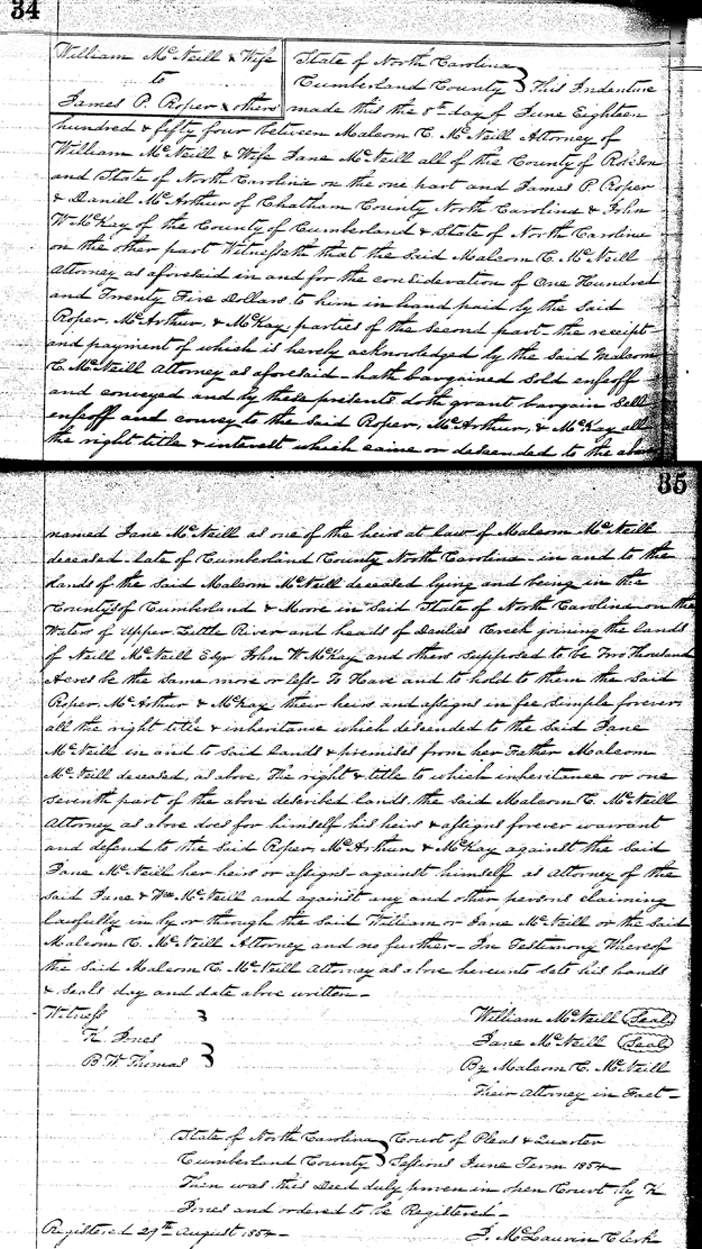 34
William McNeill & Wife
to
James P. Roper & others
State of North Carolina
Cumberland County } This Indenture
made this the 8th day of June Eighteen
hundred & fifty four between Malcom C. McNeill Attorney of
William McNeill & Wife Jane McNeill all of the County of Robeson
and State of North Carolina on the one part and James P Roper
& Daniel McArthur of Chatham County North Carolina & John
W McKay of the County of Cumberland & State of North Carolina
on the other part Witnesseth that the Said Malcom C. McNeill
Attorney as aforesaid in and for the consideration of One Hundred
and Twenty Five Dollars to him in hand paid by the Said
Roper, McArthur, & McKay, parties of the second part the receipt
and payment of which is hereby acknowledged by the Said Malcom
C. McNeill Attorney as aforesaid - hath bargained Sold enfeoff
and conveyed and by these presents doth grant bargain Sell
enfeoff and convey to the Said Roper, McArthur, & McKay all
the right title & interest which came or descended to the above
35
named Jane McNeill as one of the heirs at law of Malcom McNeill
deceased late of Cumberland County North Carolina - in and to the
Lands of the Said Malcom McNeill deceased lying and being in the
Countys of Cumberland & Moore in Said State of North Carolina on the
Waters of Upper Little River and heads of Creek joining the lands
of Neill McNeill Esqr John W McKay and others supposed to be Two Thousand
Acres be the same more or less To Have and to hold to them the Said
Roper, McArthur & McKay their heirs and assigns in fee simple forever,
all the right title & inheritance which descended to the Said Jane
McNeill in and to Said Lands & premises from her Father Malcom
McNeill deceased, as above, The right & title to which inheritance or one
Seventh part of the above described lands, the Said Malcom C. McNeill
Attorney as above does for himself his heirs & assigns forever warrant
and defend to the Said Roper, McArthur & McKay against the Said
Jane McNeill her heirs or assigns - against himself as Attorney of the
Said Jane & Wm McNeill and against any and other persons claiming
lawfully in by or through the Said William or Jane McNeill or the Said
Malcom C. McNeill Attorney and no further - In Testimony Whereof
the Said Malcom C. McNeill Attorney as above hereunto sets his hands
& Seals day and date above written -
Witness
K Jones
B. W. Thomas
William McNeill (Seal)
Jane McNeill (Seal)
By Malcom C. McNeill
Their Attorney in Fact -
State of North Carolina } Court of Pleas & Quarter
Cumberland County } Sessions June Term 1854
Then was this Deed duly proven in open Court by K
Jones and ordered to be Registered -
Registered 29th August 1854 -
J. McLaurin Clerk